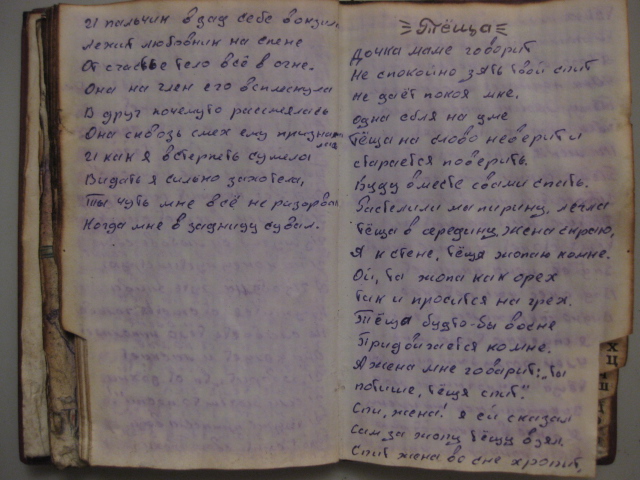 И пальчик в зад себе вонзила
Лежит любовник на спене
От счастье тело всё в огне.
Она на член его вспгнула
В друг почемуто рассмеялась
Она сквозь смех ему призналась
И как я встерпеть сумела
Видать я сильно захотела,
Ты чуть мне всё не разорвал
Когда мне в задницу сувал.
Тёща
Дочка маме говорит
Не спокойно зять твой спит
не даёт покоя мне.
одна ебля на уме
Тёща на слово неверит и
старается поверить.
Буду вместе свами спать.
Растелили мы перину, легла
Тёща в середину жена скраю,
Я к стене, тёща жопаю комне.
Ой, та жопа как орех
так и просится на грех.
Тёща будто-бы восне
Придвигается комне.
А жена мне говорит: „ты
потише, тёща спит".
Спи, жена! я ей сказал
Сам за жопу тёщу взял.
Спит жена во сне хропит,
Х
Ц